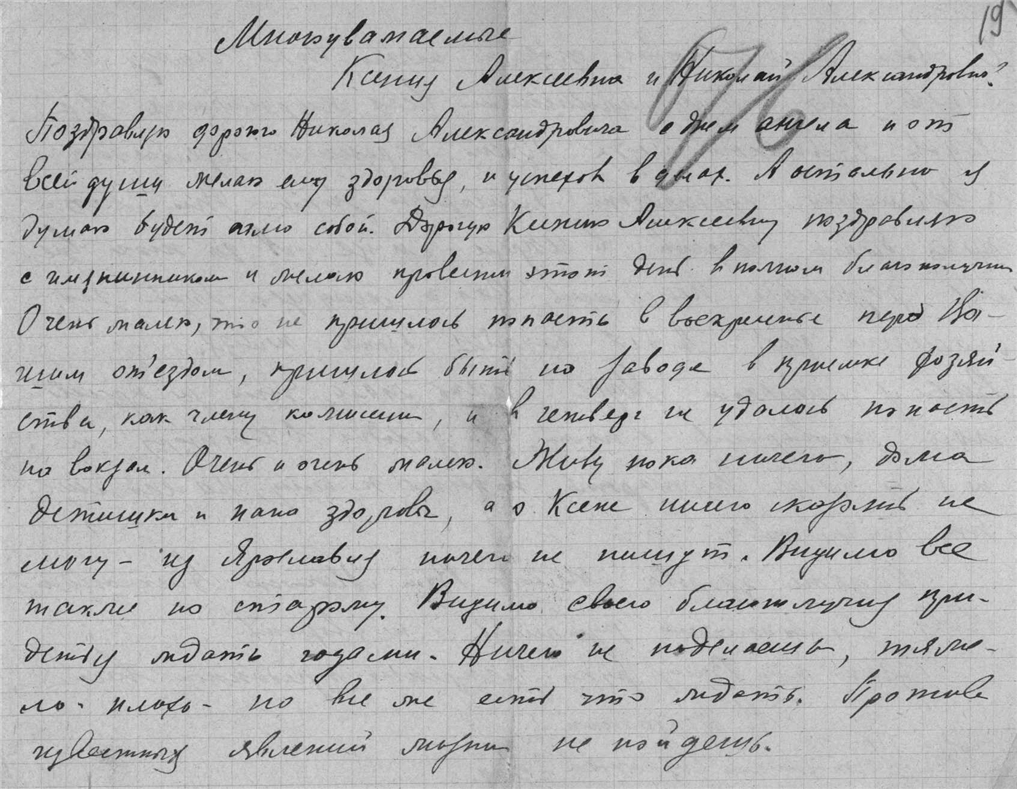 19
Многоуважаемые
Ксения Алексеевна и Николай Александрович!
Поздравляю дорогого Николая Александровича с днем ангела и от
всей души желаю ему здоровья, и успехов в делах. А остальное я
думаю будет само собой. Дорогую Ксению Алексеевну поздравляю
с имянинником и желаю провести этот день в полном благополучии
Очень жалею, что не пришлось попасть в воскресенье перед Ва-
шим от'ездом, пришлось быть на заводе в приемке хозяй-
ства, как члену комиссии, и в четверг не удалось попасть
на вокзал. Очень и очень жалею. Живу пока ничего, дома
детишки и папа здоровы, а о Ксене ничего сказать не
могу – из Ярославля ничего не пишут. Видимо все
также по старому. Видимо своего благополучия при-
дется ждать годами. Ничего не поделаешь, тяже-
ло - плохо - но все же есть что ждать. Против
известных явлений жизни не пойдешь.